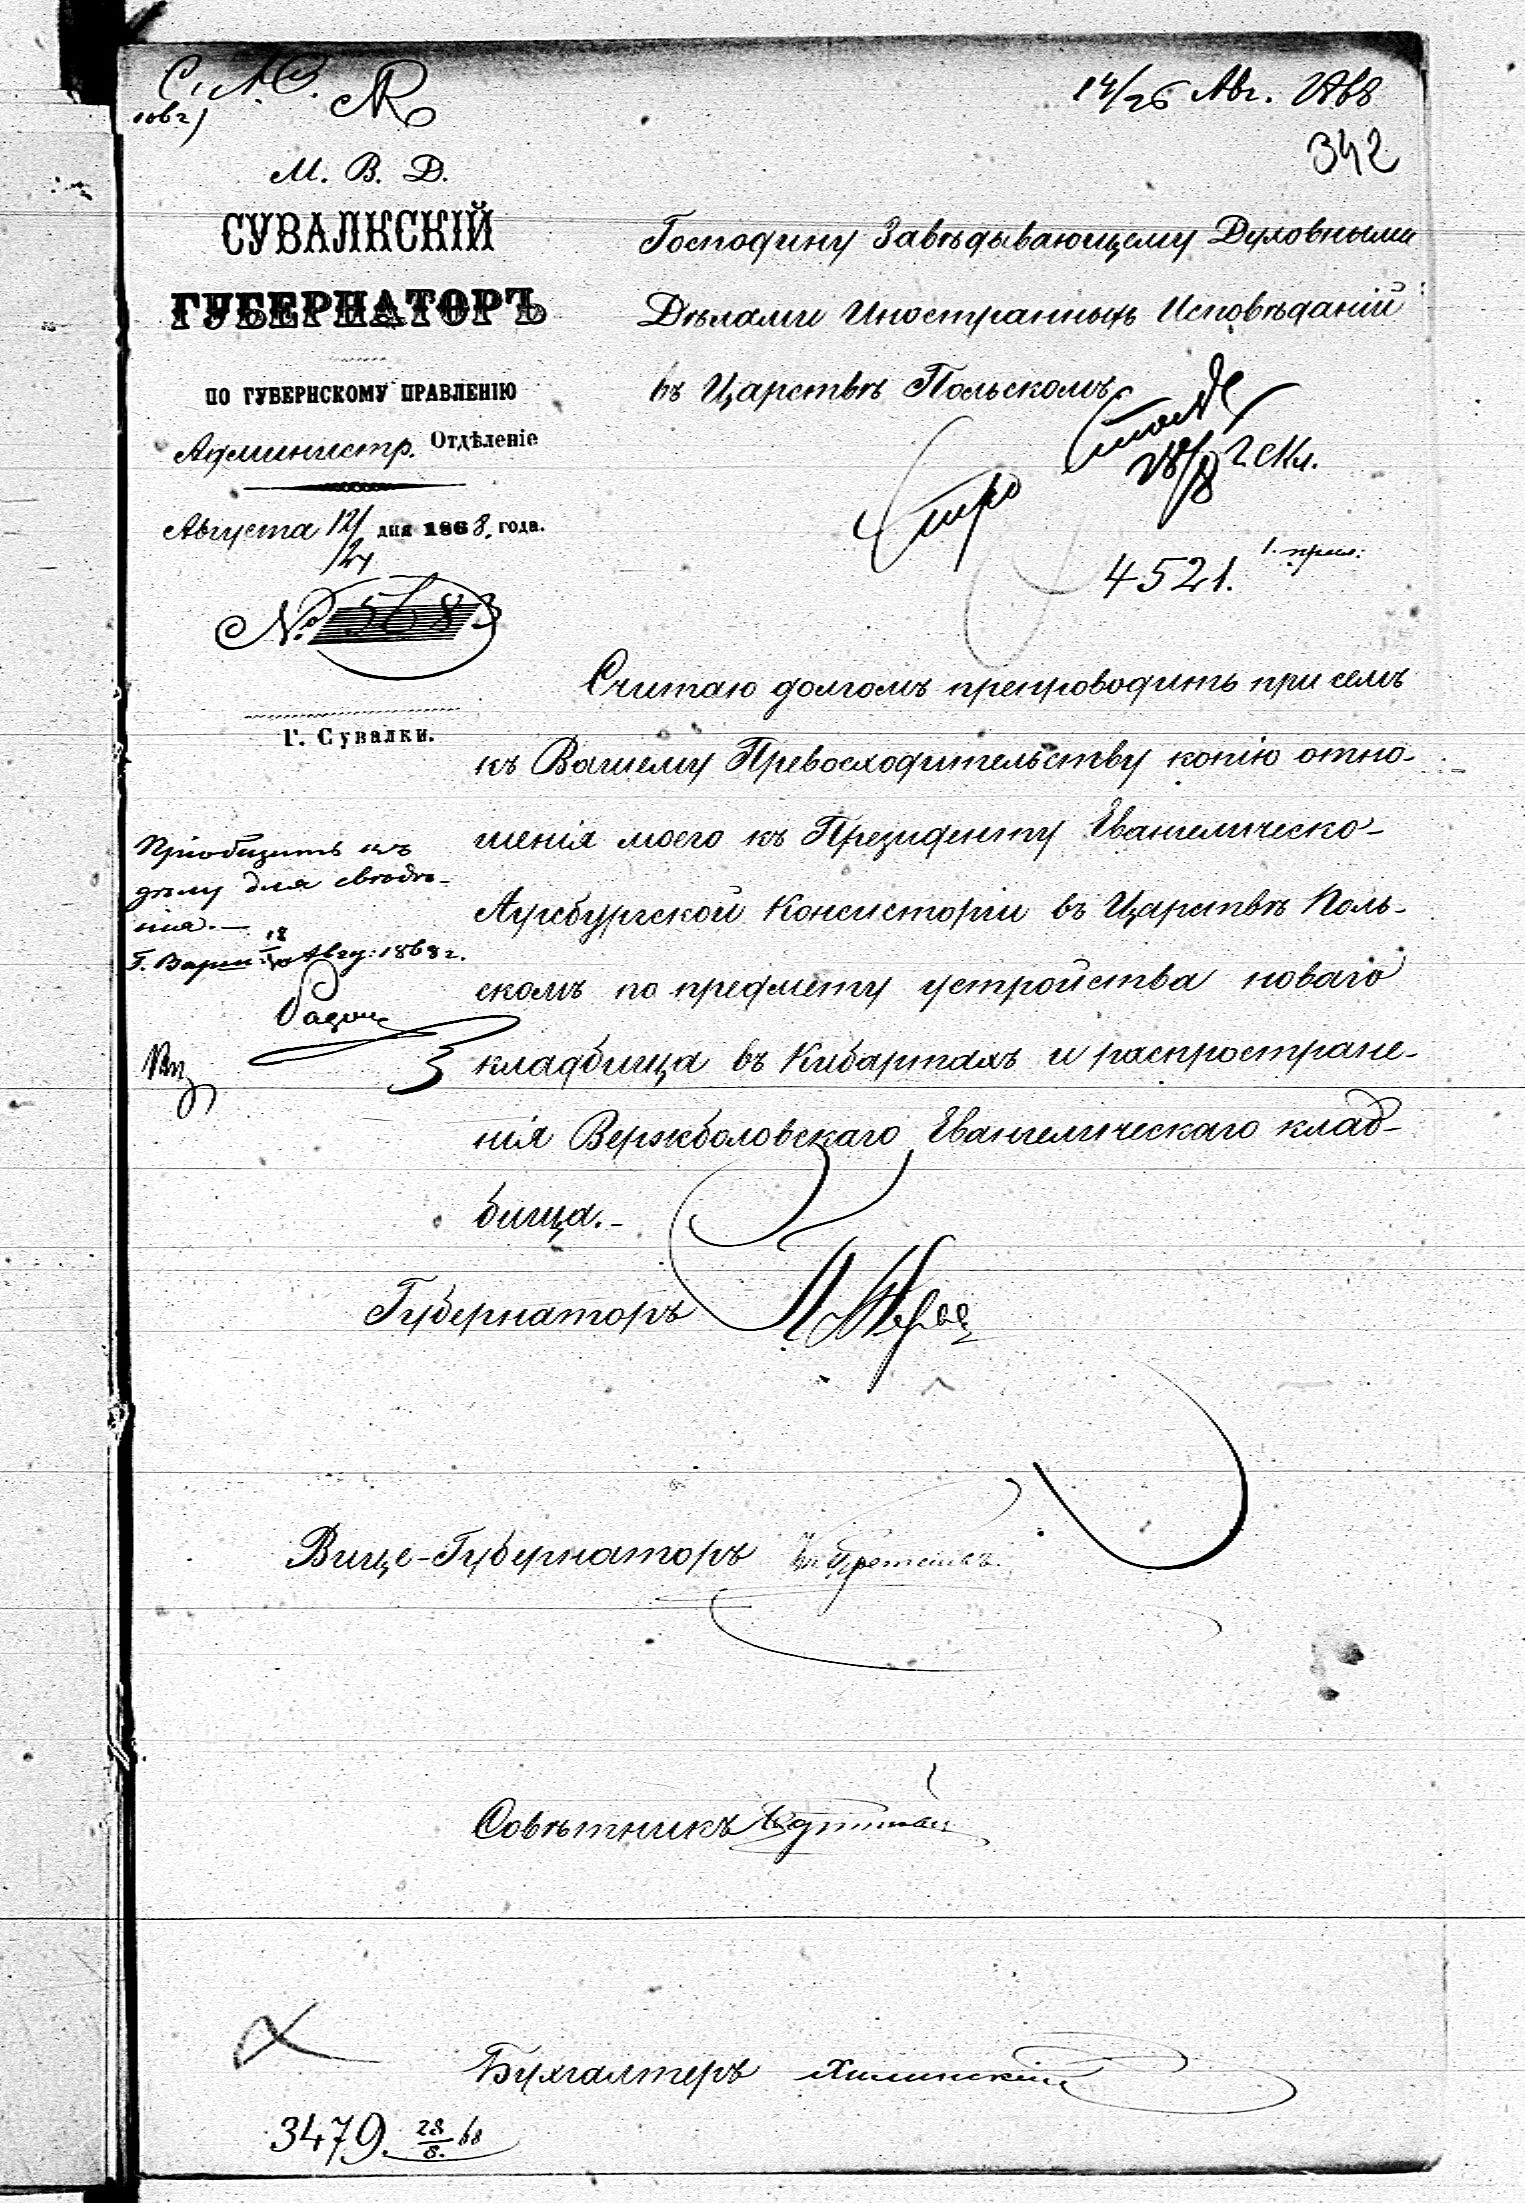 14/26 Авг. 1868
342
М. В. Д.
СУВАЛКСКІЙ
ГУБЕРНАТОРЪ
ПО ГУБЕРНСКОМУ ПРАВЛЕНІЮ
Администр. Отдѣленіе
Августа 12/24 дня 1868. года.
№ 5683
Г. Сувалки.
Господину Завѣдывающему Духовными
Дѣлами Иностранныхъ Исповѣданій
въ Царствѣ Польскомъ
28/8
4521. 1. прил:
Считаю долгомъ препроводить при семъ
къ Вашему Превосходительству копію отно-
шенія моего къ Президенту Евангелическо-
Аугсбургской Консисторіи въ Царствѣ Поль-
скомъ по предмету устройства новаго
кладбища въ Кибартахъ и распростране-
нія Вержболовскаго Евангелическаго клад-
бища.-
Пріобщить къ
дѣлу для свѣдѣ-
нія.-
Г. Варш. 18/30 Авгу: 1868 г.
Губернаторъ
Вице-Губернаторъ
Совѣтникъ
Бухгалтеръ Хилинскій
3479. 28/8. 68